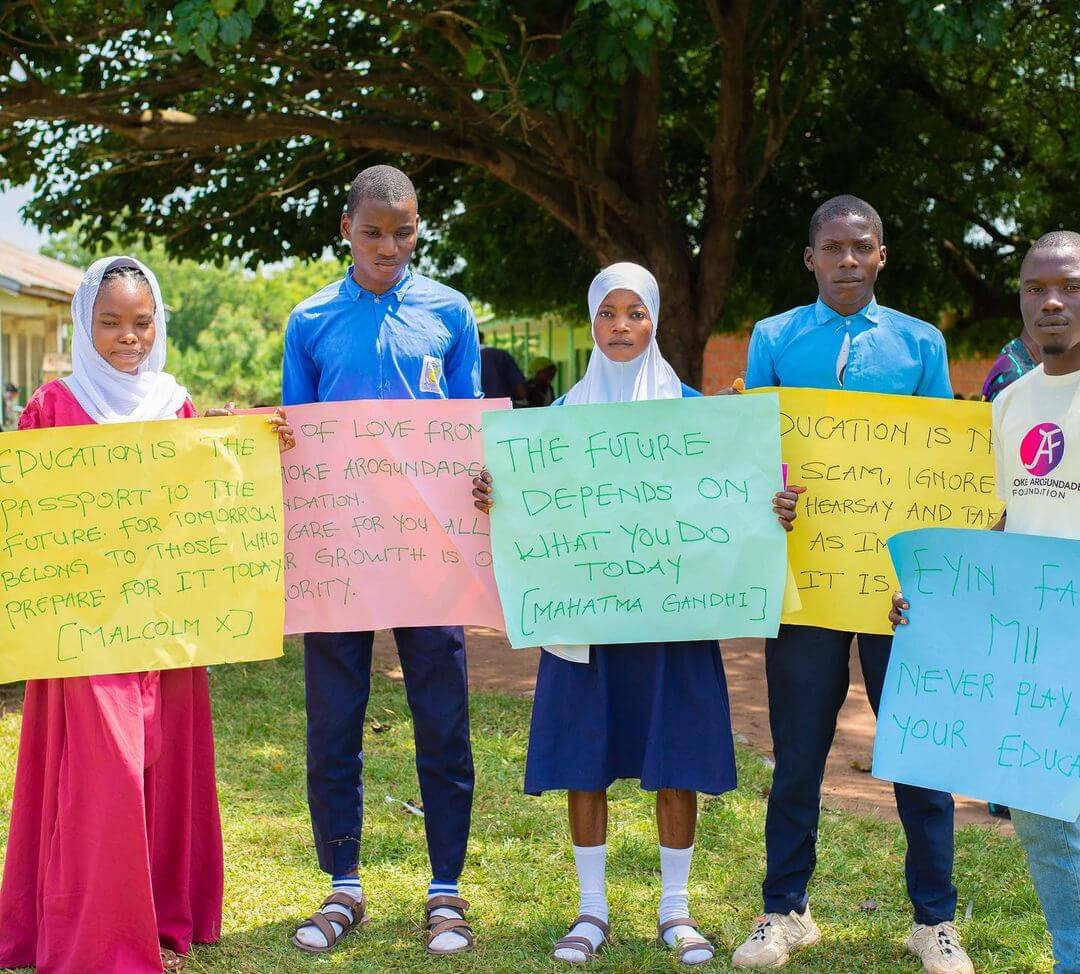 EDUCATION IS THE
PASSPORT TO THE
FUTURE. FOR TOMORROW
BELONG TO THOSE WHO
PREPARE FOR IT TODAY
[MALCOLM X]
OF LOVE FROM
AROGUNDADE
CARE FOR YOU ALL
GROWTH IS
THE FUTURE
DEPENDS ON
WHAT YOU DO
TODAY
[MAHATMA GANDHI]
IS
SCAM, IGNORE
HEARSAY AND
AS
IT IS
AF
AROGUNDADE
FOUNDATION
EYIN
MII
NEVER PLAY
YOUR